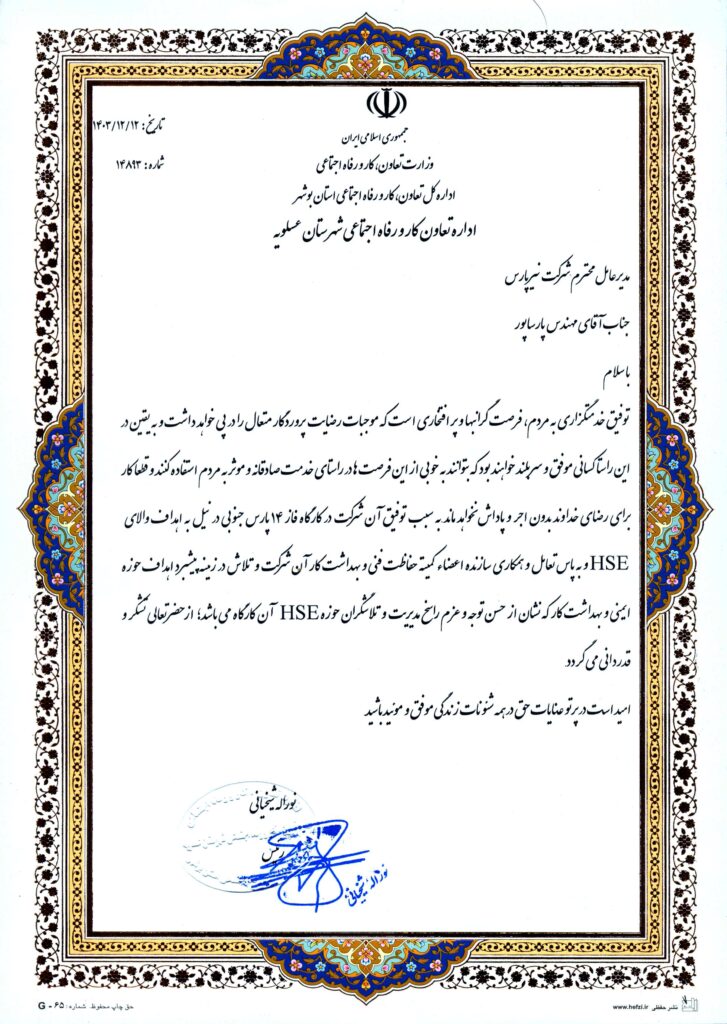 تاریخ: ۱۴۰۳/۱۲/۱۲
جمهوری اسلامی ایران
شماره: ۱۴۸۹۳
وزارت تعاون، کار و رفاه اجتماعی
اداره کل تعاون، کار و رفاه اجتماعی استان بوشهر
اداره تعاون کار و رفاه اجتماعی شهرستان عسلویه
مدیرعامل محترم شرکت نیرپارس
جناب آقای مهندس پارساپور
باسلام
توفیق خدمتگزاری به مردم، فرصت گرانبها و پر افتخاری است که موجبات رضایت پروردگار متعال را در پی خواهد داشت و به یقین در
این راستا کسانی موفق و سربلند خواهند بود که بتوانند به خوبی از این فرصت ها در راستای خدمت صادقانه و موثر به مردم استفاده کنند و قطعا کار
برای رضای خداوند بدون اجر و پاداش نخواهد ماند به سبب توفیق آن شرکت در کارگاه فاز ۱۴ پارس جنوبی در نیل به اهداف والای
HSE و به پاس تعامل و همکاری سازنده اعضاء کمیته حفاظت فنی و بهداشت کار آن شرکت و تلاش در زمینه پیشبرد اهداف حوزه
ایمنی و بهداشت کار که نشان از حسن توجه و عزم راسخ مدیریت و تلاشگران حوزه HSE آن کارگاه می باشد؛ از حضرتعالی تشکر و
قدردانی می گردد
امید است در پرتو عنایات حق در همه شئونات زندگی موفق و موئید باشید
نوراله شیخیانی
رئیس
نوراله شیخیانی
نشر حفظی www.hefzi.ir
حق چاپ محفوظ. شماره: ۶۵ - G